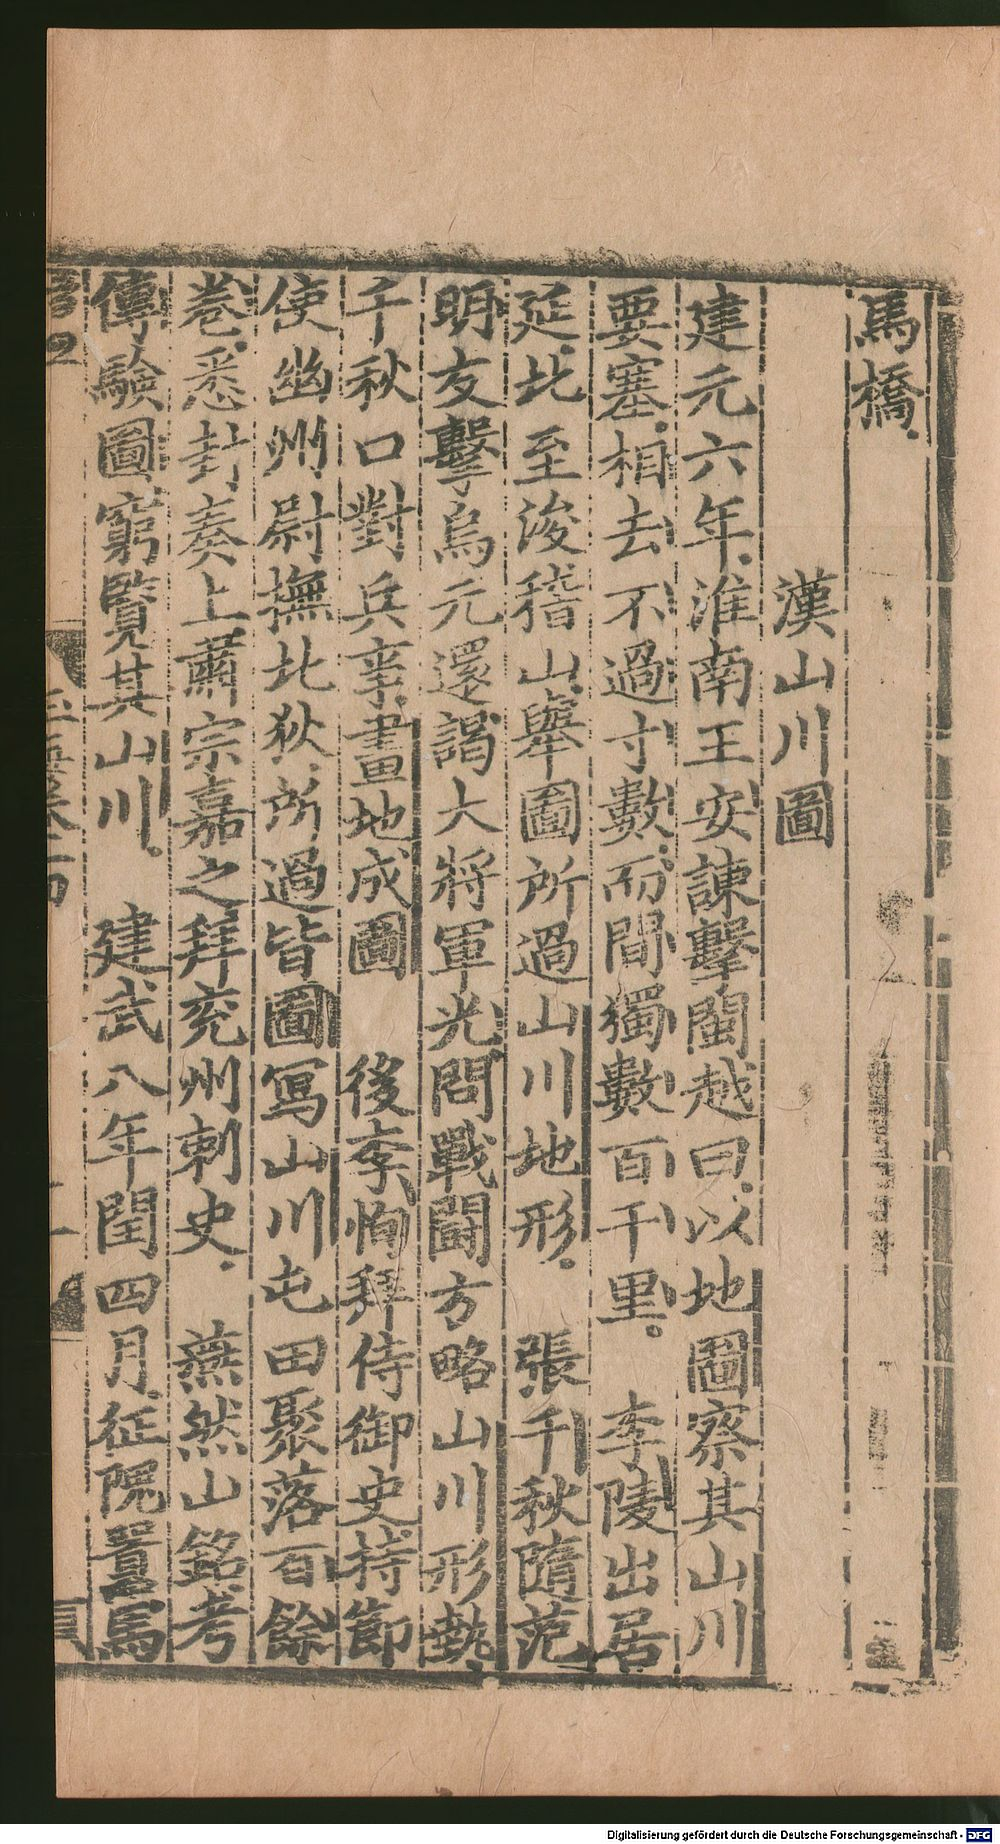 馬橋
漢山川圖
建元六年淮南王安諌擊閩越曰以地圖察其山川
要塞相去不過寸數而間獨數百千里 李陵出居
延北至浚稽山舉圖所過山川地形 張千秋隨范
明友擊烏元還謁大將軍光問戰鬪方略山川形埶
千秋口對兵事畫地成圖 後李恂拜侍御史持節
使幽州尉撫北狄所過皆圖寫山川屯田聚落百餘
卷悉封奏上肅宗嘉之拜兖州刺史 燕然山銘考
傳驗圖窮覽其山川 建武八年閏四月征隗囂馬
Digitalisierung gefördert durch die Deutsche Forschungsgemeinschaft - DFG